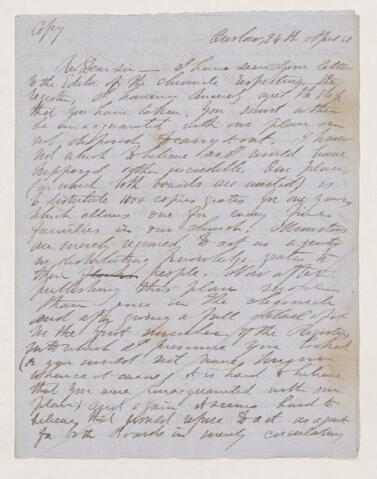 Copy
Onslow, 26th April 50
My Dear Sir — I have seen your letter
to the Editor of the Chronicle respecting the
Register, & I sincerely regret the step
that you have taken. You must either
be unacquainted with our plan or
not disposed to carry it out. I know
not which to believe and would have
supposed either incredible. Our plan
(in which both boards are united) is
to distribute 1000 copies gratis for one year
which allows one for every five
families in our church. Ministers
are merely required to act as agents
in distributing knowledge gratis to
their people. Now after
publishing this plan
once in the Chronicle
and after giving a full detail of it
in the first number of the Register,
into which I presume you looked
(or you would not have known
whence it came) it is hard to believe
that you were unacquainted with our
plan; and again it seems hard to
believe that you would refuse to act as agent
for both Boards in merely circulating